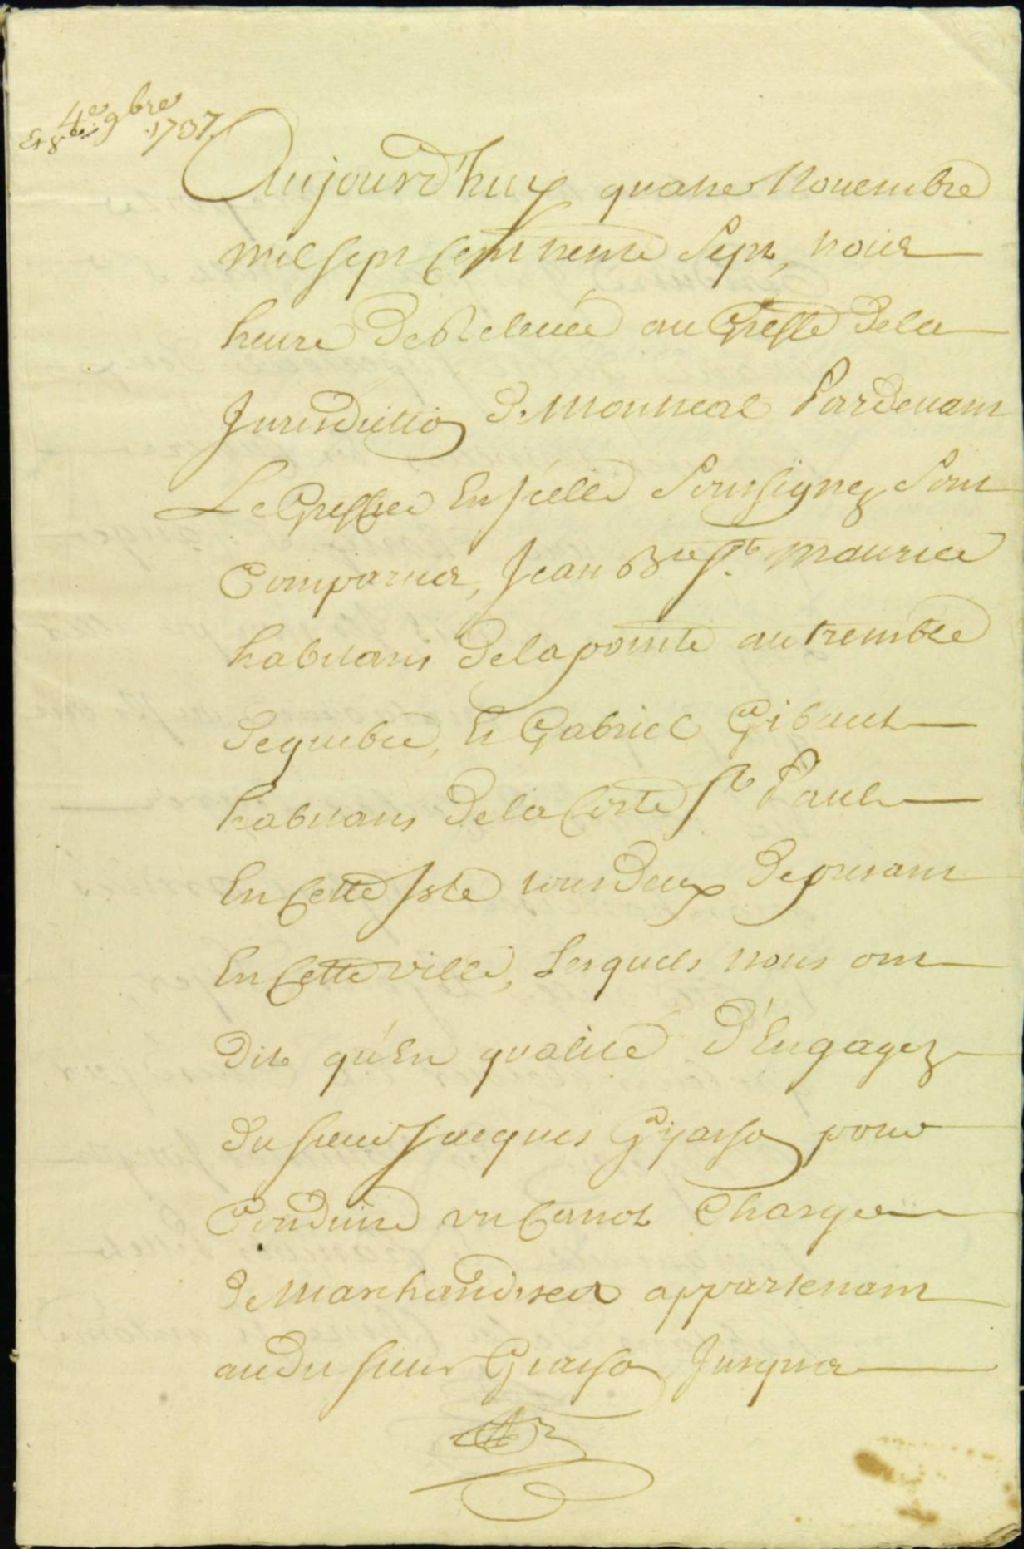 4e 9bre
Et 8e 1737
Aujourd'huy quatre Novembre
mil sept Cent trente Sept, trois
heure De Relevée au Greffe de la
Jurisdiction De Montreal Pardevant
Le Greffier En jcelle Soussignez Sont
Comparus, Jean Bte St Maurice
habitans de la pointe au tremble
de quebec, Et Gabriel Gibault
habitans de la Coste St Paul
En Cette Isle tous deux De present
En Cette ville, Lesquels nous ont
dit qu'En qualité D'Engagez
du sieur Jacques Giasson pour
Conduire un Canot Chargée
de Marchandises appartenant
audit sieur Giasson Jusques